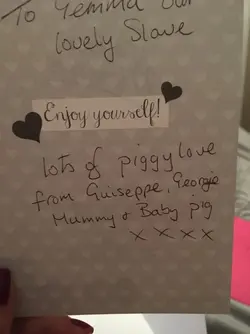 To Gemma our
lovely Slave
Enjoy yourself!
lots of piggy love
from Guiseppe, Georgie
Mummy & Baby pig
x x x x